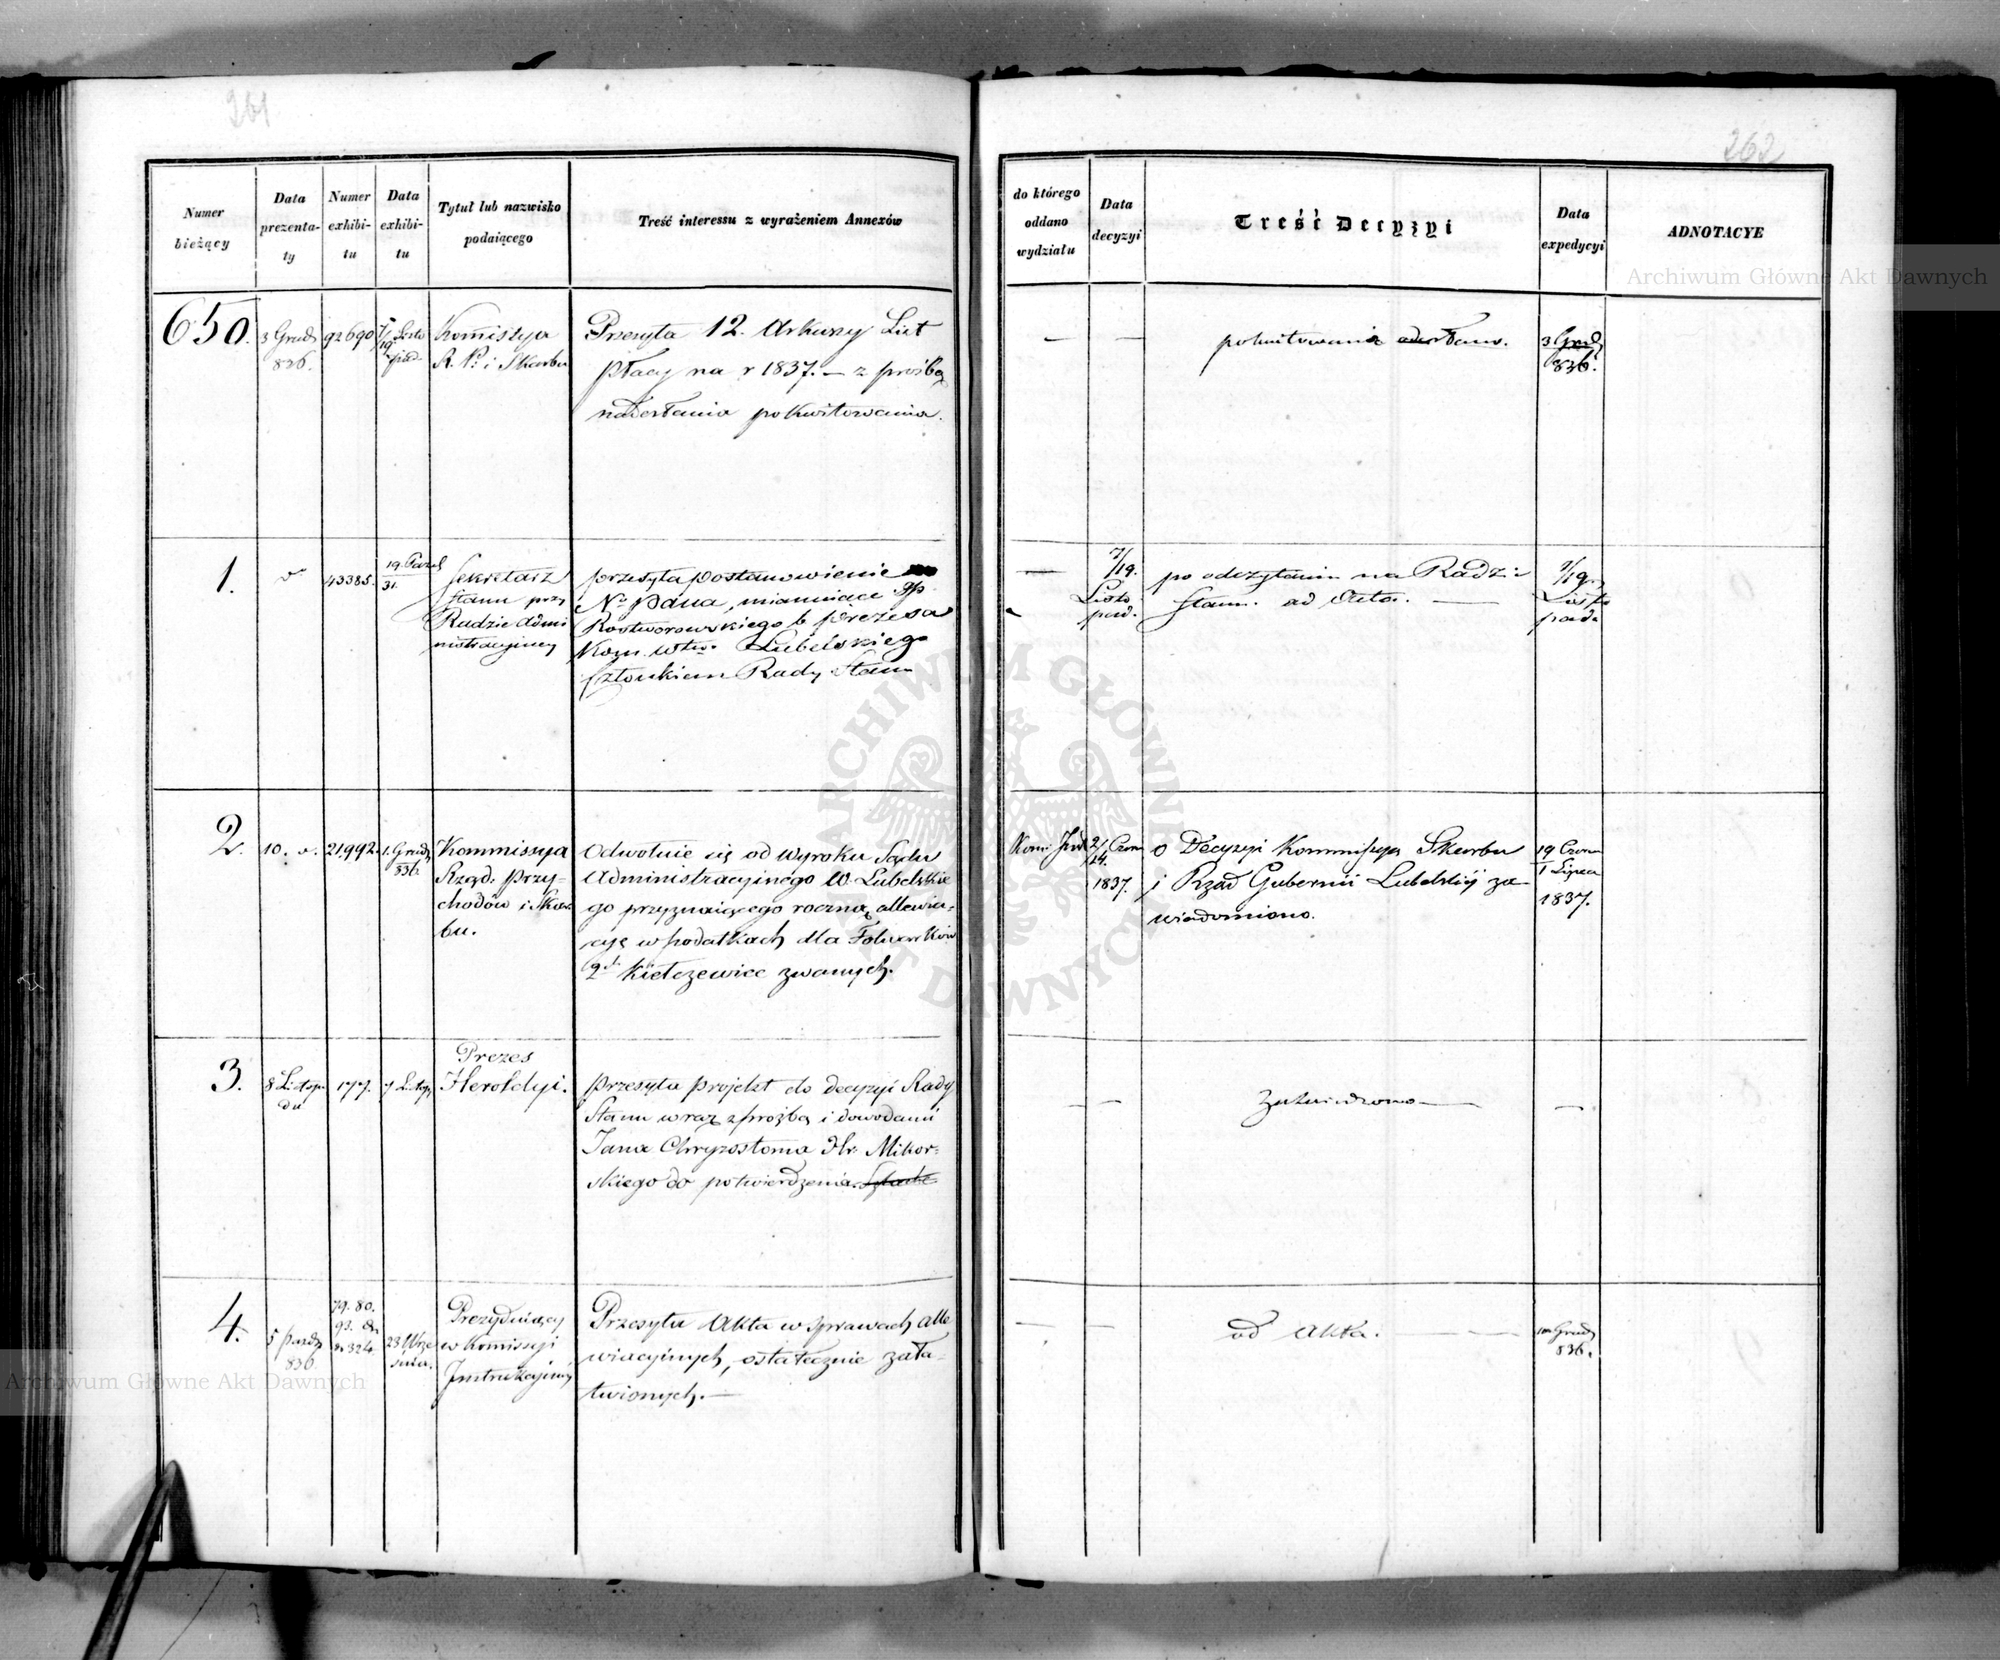 261
Numer
bieżący
Data
prezenta-
ty
Numer
exhibi-
tu
Data
exhibi-
tu
Tytuł lub nazwisko
podaiącego
Treść interessu z wyrażeniem Annexów
650.
3 Grud
836.
92690
7/19 Listo
pad.
Kommissya
R. P. i Skarbu
Przesyła 12. Arkuszy List
Płacy na r 1837. — z prośbą
nadesłania pokwitowania.
1.
43385.
19. Paźd
31.
Sekretarz
Stanu przy
Radzie Admi
nistracyjney
przesyła postanowienie
N. Pana, mianuiące JP.
Rostworowskiego b. prezesa
Kom. Wtwa. Lubelskiego
Członkiem Rady Stanu
2.
10. "
21992.
1. Grud
836
Kommissya
Rząd. Przy-
chodów i Skar
bu.
Odwołuie się od Wyroku Sądu
Administracyinego W. Lubelskie
go przyznaiącego roczną allewia-
cyę w podatkach dla Folwarków
2ch Kiełczewice zwanych.
3.
8 Listopa
da
177.
7 Listop
Prezes
Heroldyi.
Przesyła projekt do decyzyi Rady
Stanu wraz z prożbą i dowodami
Jana Chryzostoma Hr. Mikor-
skiego do potwierdzenia.
4.
5 Paźdz
836
79. 80.
93.
324.
23 Wrze
śnia.
Prezyduiący
w Komissyi
Instrukcyjnej
Przesyła Akta w sprawach alle
wiacyinych, ostatecznie zała-
twionych. —
262
do którego
oddano
wydziału
Data
decyzyi
Treść Decyzyi
Data
expedycyi
ADNOTACYE
—
—
pokwitowanie odesłano.
3 Grud
836.
—
7/19.
Listo
pad.
po odczytaniu na Radzie
Stanu. ad Acta. —
7/19.
Listo
pada
2/14. Czerw
1837.
o Decyzyi Kommissya Skarbu
i Rząd Gubernii Lubelskiej za-
wiadomiono.
19 Czerw
1 Lipca
1837.
— —
Zatwierdzono —
—
—
—
ad Akta. — —
Grud
836.
Archiwum Główne Akt Dawnych
ARCHIWUM GŁÓWNE AKT DAWNYCH
Archiwum Główne Akt Dawnych